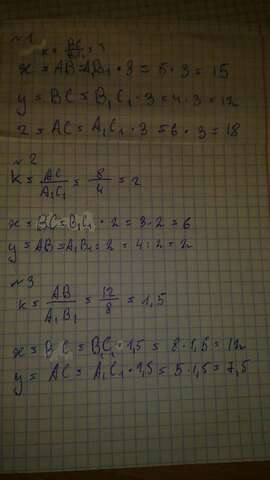 №1
k = BC/B₁C₁ = 3
x = AB = A₁B₁ · 3 = 5 · 3 = 15
y = BC = B₁C₁ · 3 = 4 · 3 = 12
z = AC = A₁C₁ · 3 = 6 · 3 = 18
№2
k = AC/A₁C₁ = 8/4 = 2
x = BC = B₁C₁ · 2 = 3 · 2 = 6
y = AB = A₁B₁ = 2 = 4 : 2 = 2
№3
k = AB/A₁B₁ = 12/8 = 1,5
x = BC = B₁C₁ · 1,5 = 8 · 1,5 = 12
y = AC = A₁C₁ · 1,5 = 5 · 1,5 = 7,5